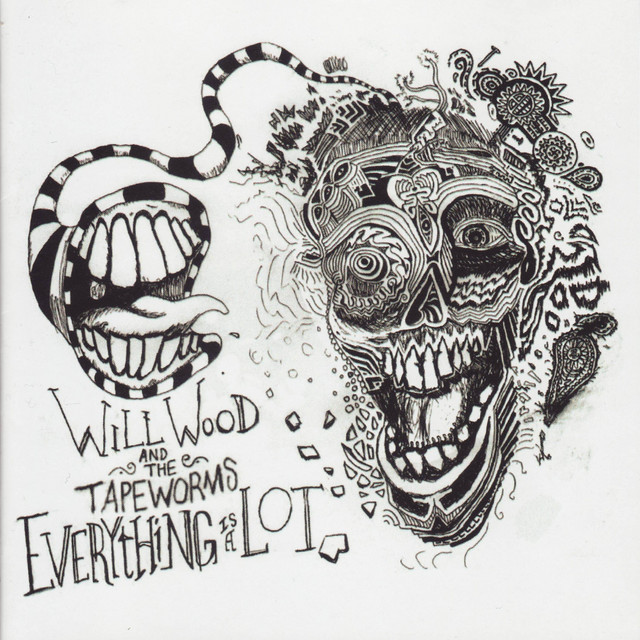 WILL WOOD
AND
THE
TAPEWORMS
EVERYtHiNG iS A LOT